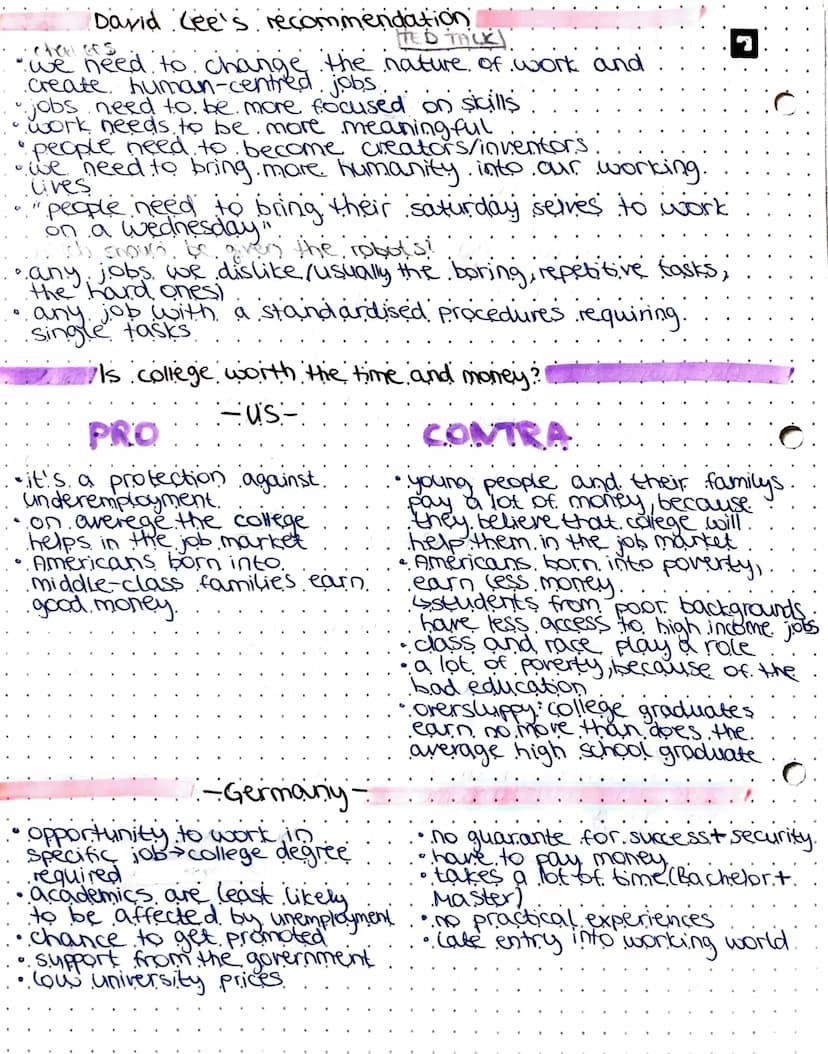 David Lee's recommendation
TED TALK
7
• we need to change the nature of work and
create human-centred jobs
• jobs need to be more focused on skills
• work needs to be more meaningful
• people need to become creators/inventors
• we need to bring more humanity into our working
lives
• "people need to bring their saturday selves to work
on a wednesday"
should be given the robots!
• any jobs we dislike/usually the boring, repetitive tasks,
the hard ones)
• any job with a standardised procedures requiring
single tasks
Is college worth the time and money?
-US-
PRO
• it's a protection against
underemployment
• on averege the college
helps in the job market
• Americans born into
middle-class families earn
good money
CONTRA
• young people and their familys
pay a lot of money, because
they believe that college will
help them in the job market
• Americans born into poverty,
earn less money
↳ students from poor backgrounds
have less access to high income jobs
• class and race play a role
• a lot of poverty, because of the
bad education
• oversluppy: college graduates
earn no more than does the
average high school graduate
-Germany-
• opportunity to work in
specific job→college degree
required
• academics are least likely
to be affected by unemployment
• chance to get promoted
• support from the government
• low university prices
• no guarante for success + security
• have to pay money
• takes a lot of time (Bachelor +
Master)
• no practical experiences
• late entry into working world